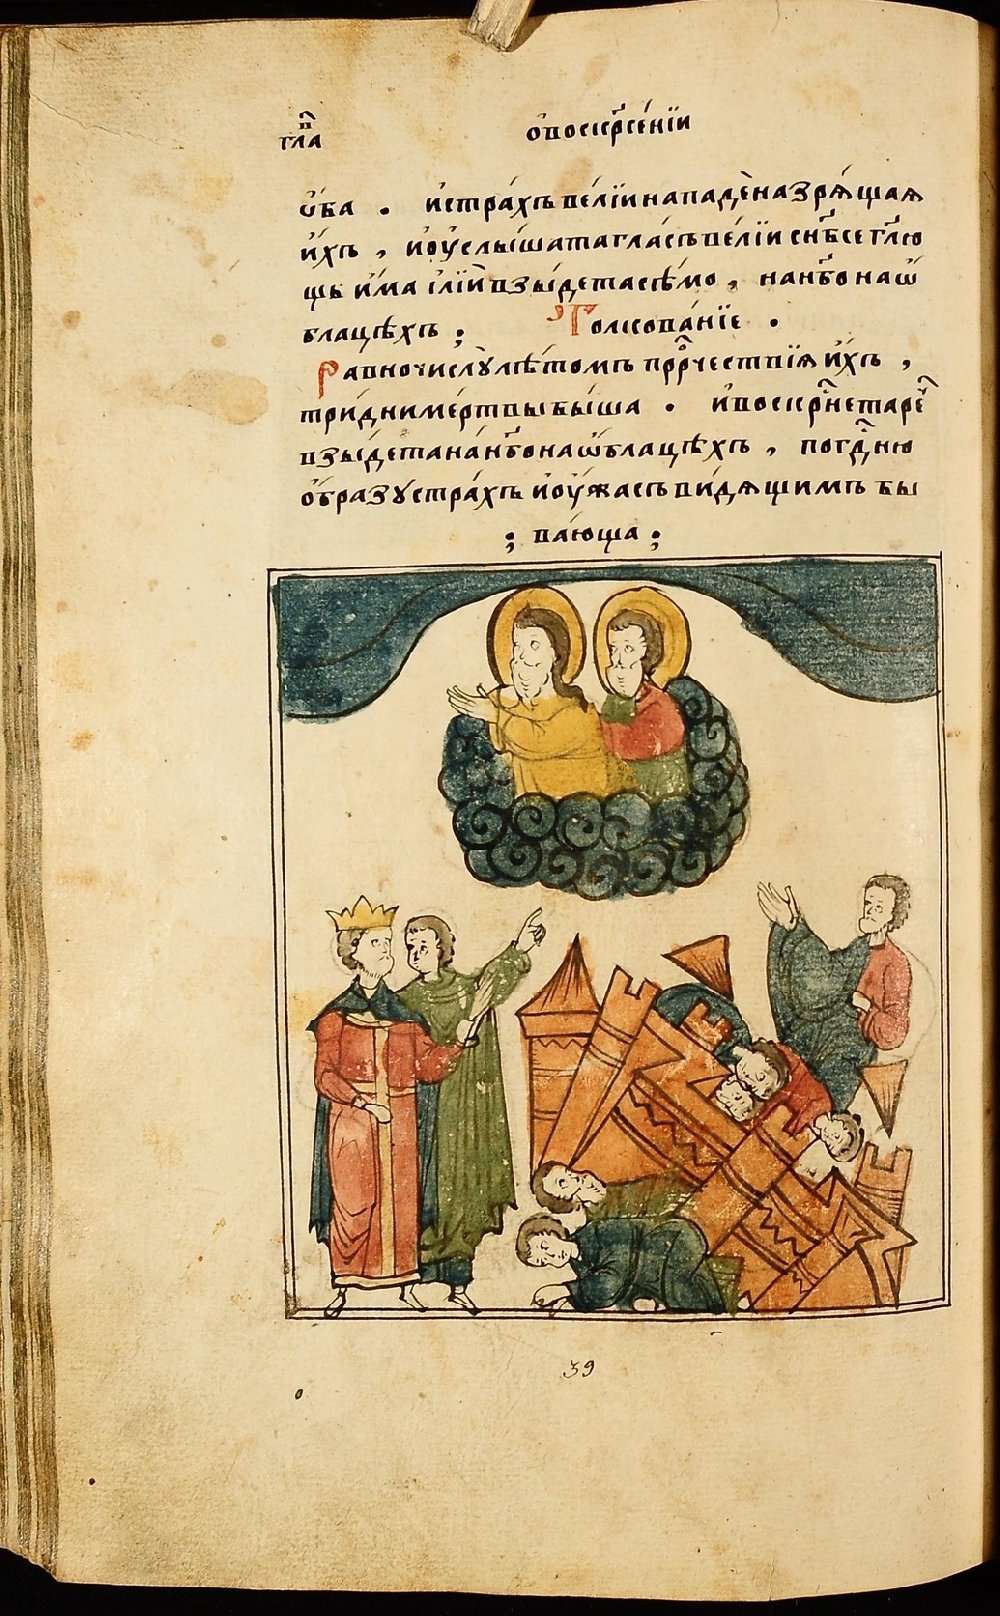 гла в҃ ѻ҆воскр҃се́нїи
ѻ҆́ба . и҆стра́хъ ве́лїи нападѐ назрѧ́щаѧ
и҆́хъ , и҆оу҆слы́шата гла́съ ве́лїи сн҃бсе гл҃ю
щь и҆́ма і҆лїи̑ взы́дета сѣ́мо , нан҃бо наѡ҆́
блацѣхъ ; Толкова́нїе .
Равночислꙋ лѣ́томъ прⷪ҇рчествїѧ и҆́хъ ,
три́дни ме́ртвы бы́ша . и҆воскрⷭ҇нета ре́ⷱ
взы́дета на́н҃бо наѡ҆́блацѣхъ , погⷭ҇дню
ѻ҆́бразꙋ стра́хъ и҆оу҆́жасъ ви́дѧщимъ бы
; ва́юща ;
39